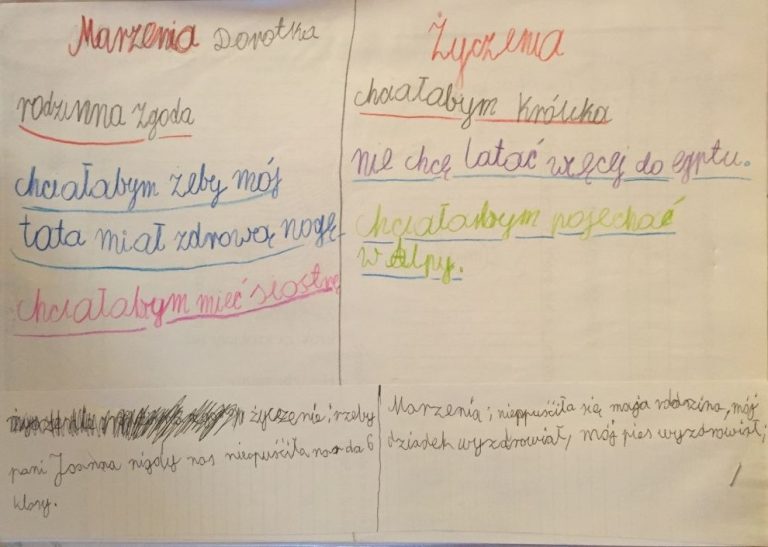 Marzenia Dorotka
rodzinna zgoda
chciałabym żeby mój
tata miał zdrową nogę
chciałabym mieć siostrę
Życzenia
chciałabym Królika
nie chcę latać więcej do egptu.
chciałabym pojechać
w Alpy.
życzenie; rzeby
pani Joanna nigdy nas nieopuściła do 6
klasy.
Marzenia; nieopuściła się moja rodzina, mój
dziadek wyzdrowiał, mój pies wyzdrowiał;